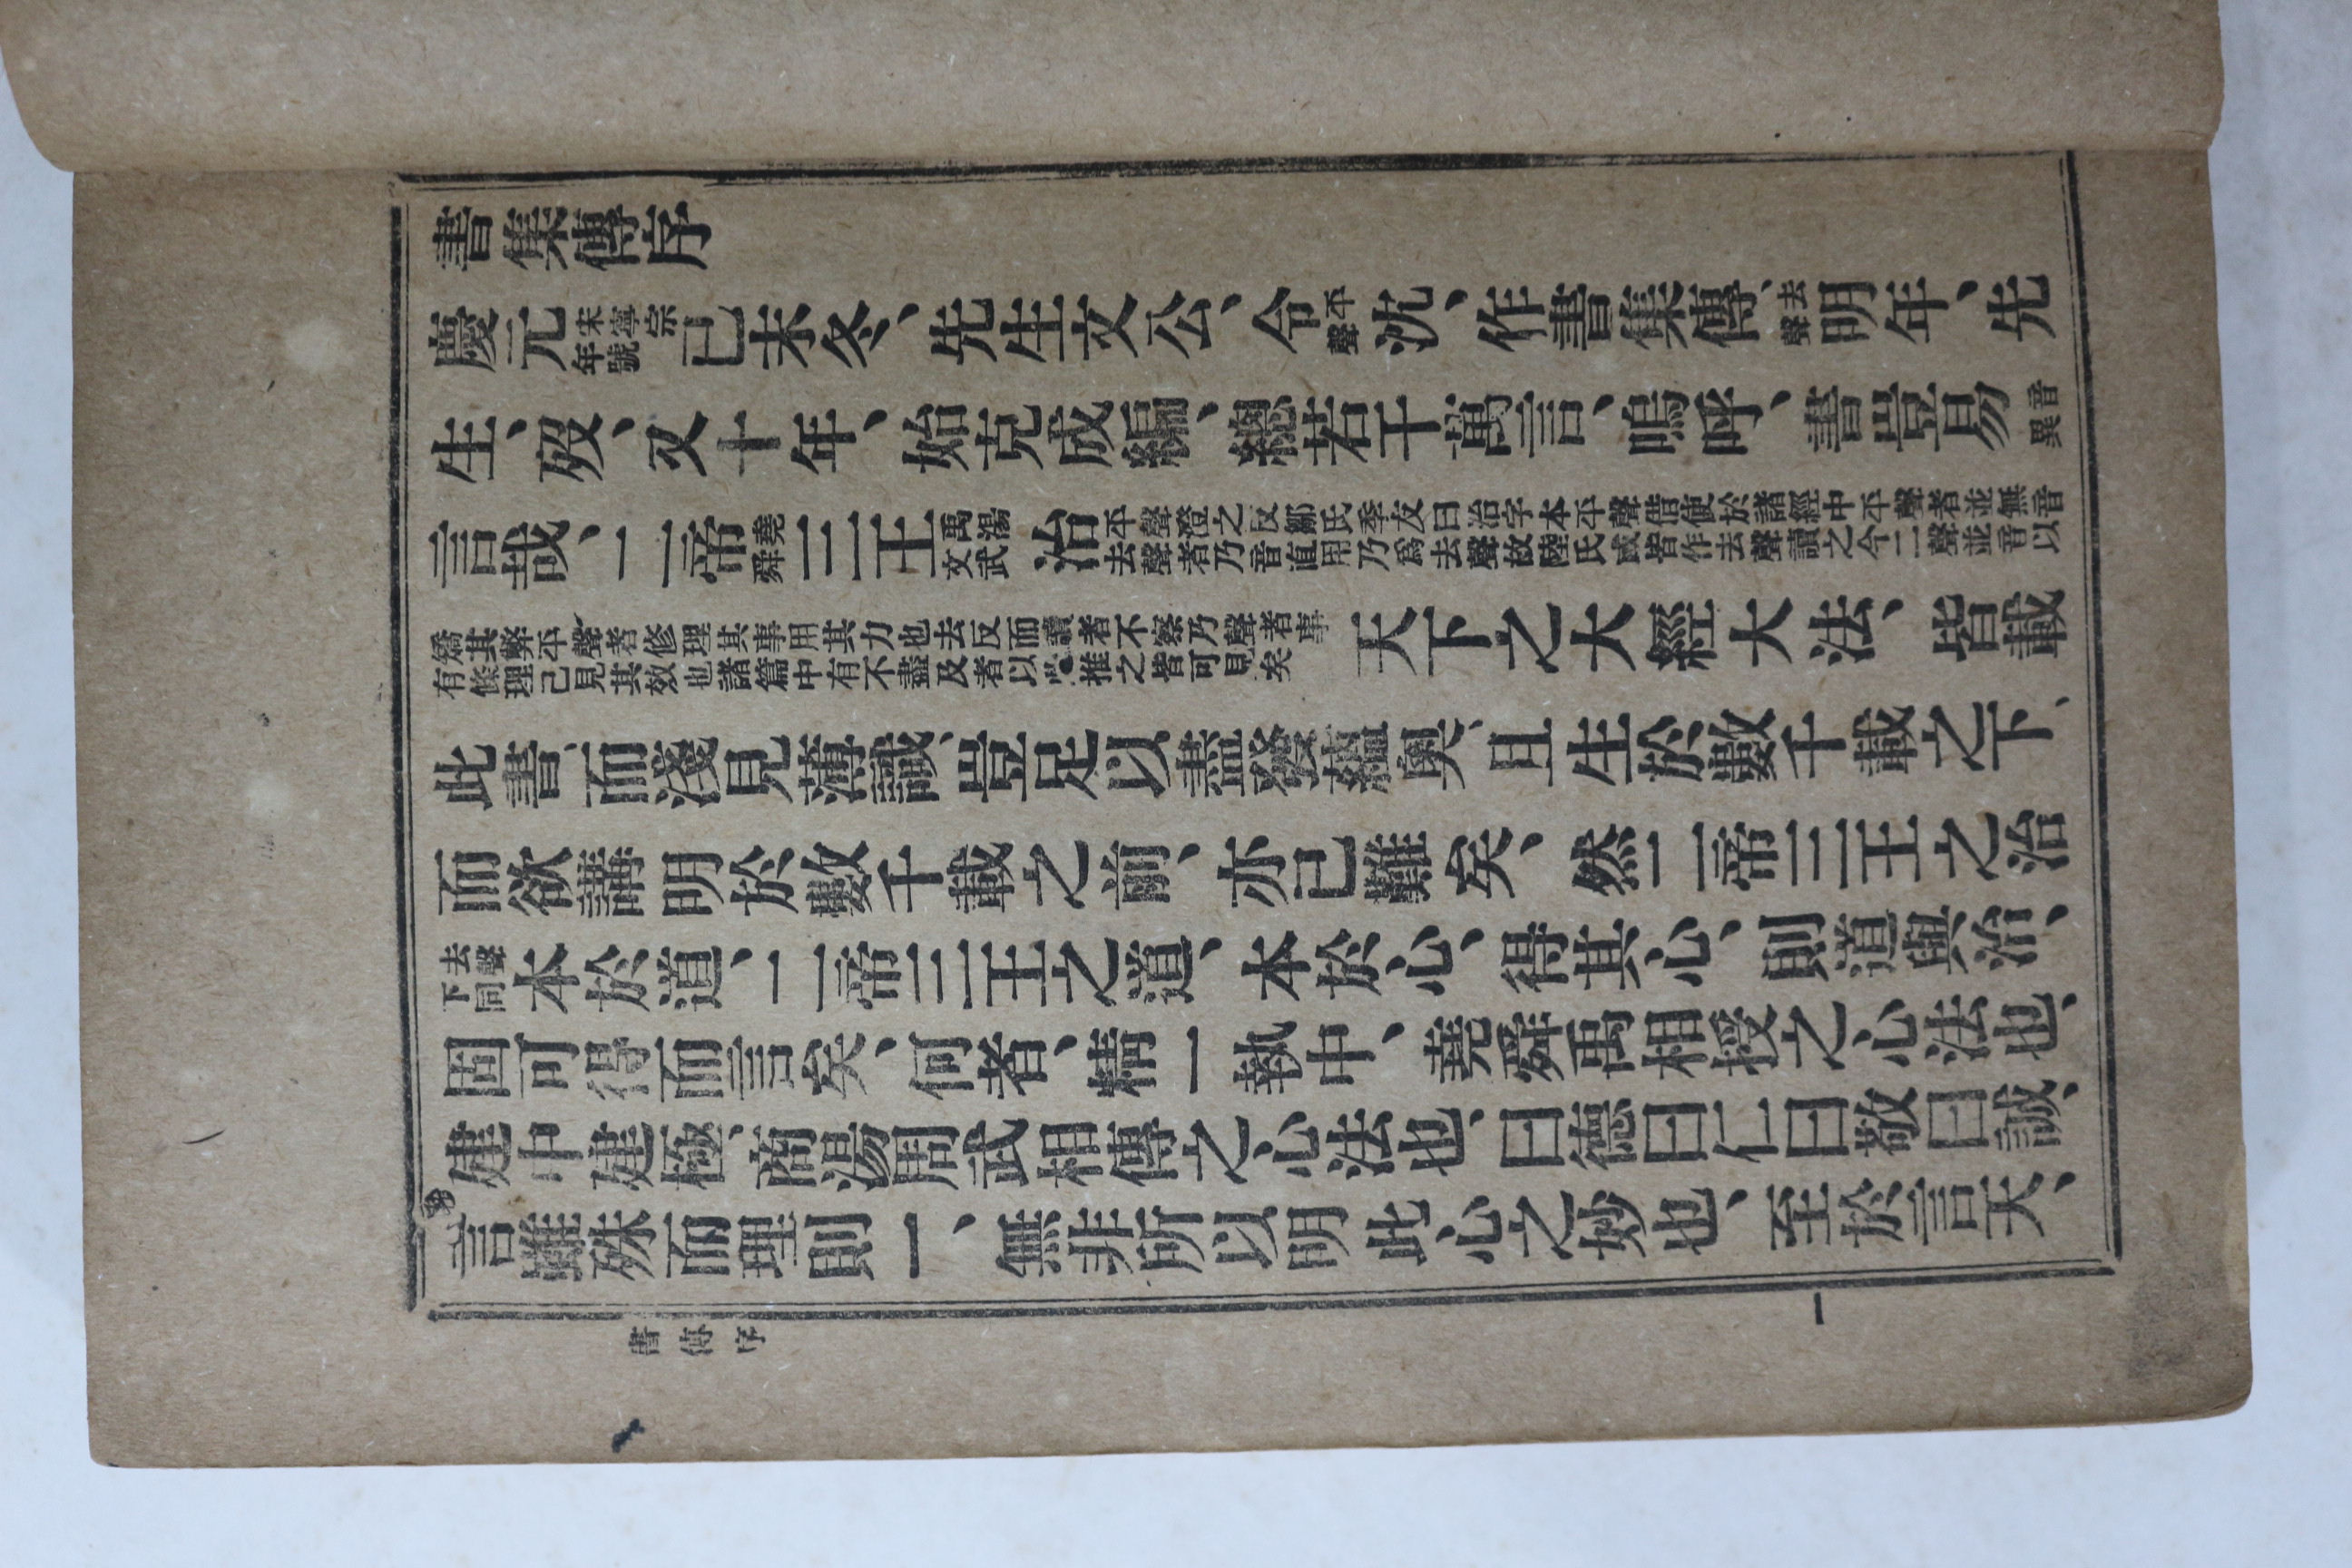 書集傳序
慶元宋寧宗年號己未冬、先生文公、令平聲沈、作書集傳、去聲明年、先
生、歿、又十年、始克成編、總若干萬言、嗚呼、書豈易音異
言哉、二帝堯舜三王禹湯文武治平聲澄之反鄒氏季友曰治字本平聲借使於諸經中平聲者並無音去聲者乃音直用乃爲去聲故陸氏或皆作去聲讀之今二聲並音以
矯其弊平聲者修理其事用其力也去反而讀者不察乃聲者事有條理已見其效也諸篇中有不盡及者以推之皆可見矣天下之大經大法、皆載
此書、而淺見薄識、豈足以盡發蘊奧、且生於數千載之下、
而欲講明於數千載之前、亦已難矣、然二帝三王之治
去聲下同本於道、二帝三王之道、本於心、得其心、則道與治、
固可得而言矣、何者、精一執中、堯舜禹相授之心法也、
建中建極、商湯周武相傳之心法也、曰德曰仁曰敬曰誠、
言雖殊而理則一、無非所以明此心之妙也、至於言天、
書傳序 一